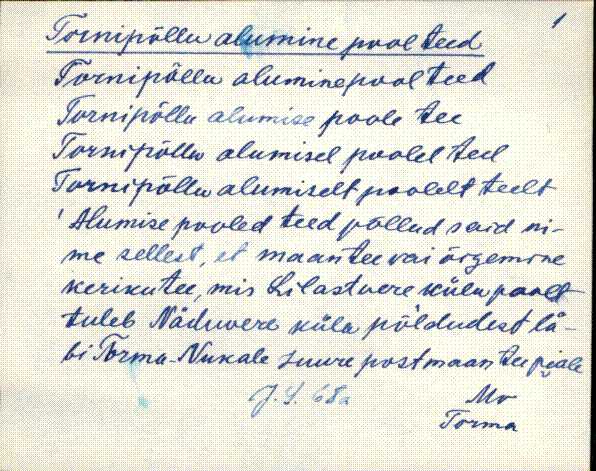 1
Tornipõllu alumine pool teed
Tornipõllu alumine pool teed
Tornipõllu alumise poole tee
Tornipõllu alumisel poolel teel
Tornipõllu alumiselt poolelt teelt
' Alumise pooled teed põllud said ni-
me sellest, et maantee vai õigemine
kerikutee, mis Lilastvere küla poolt
tuleb Näduvere küla põldudest lä-
bi Torma-Nukale suure postmaantee piale
J. S. 68a Mv
Torma